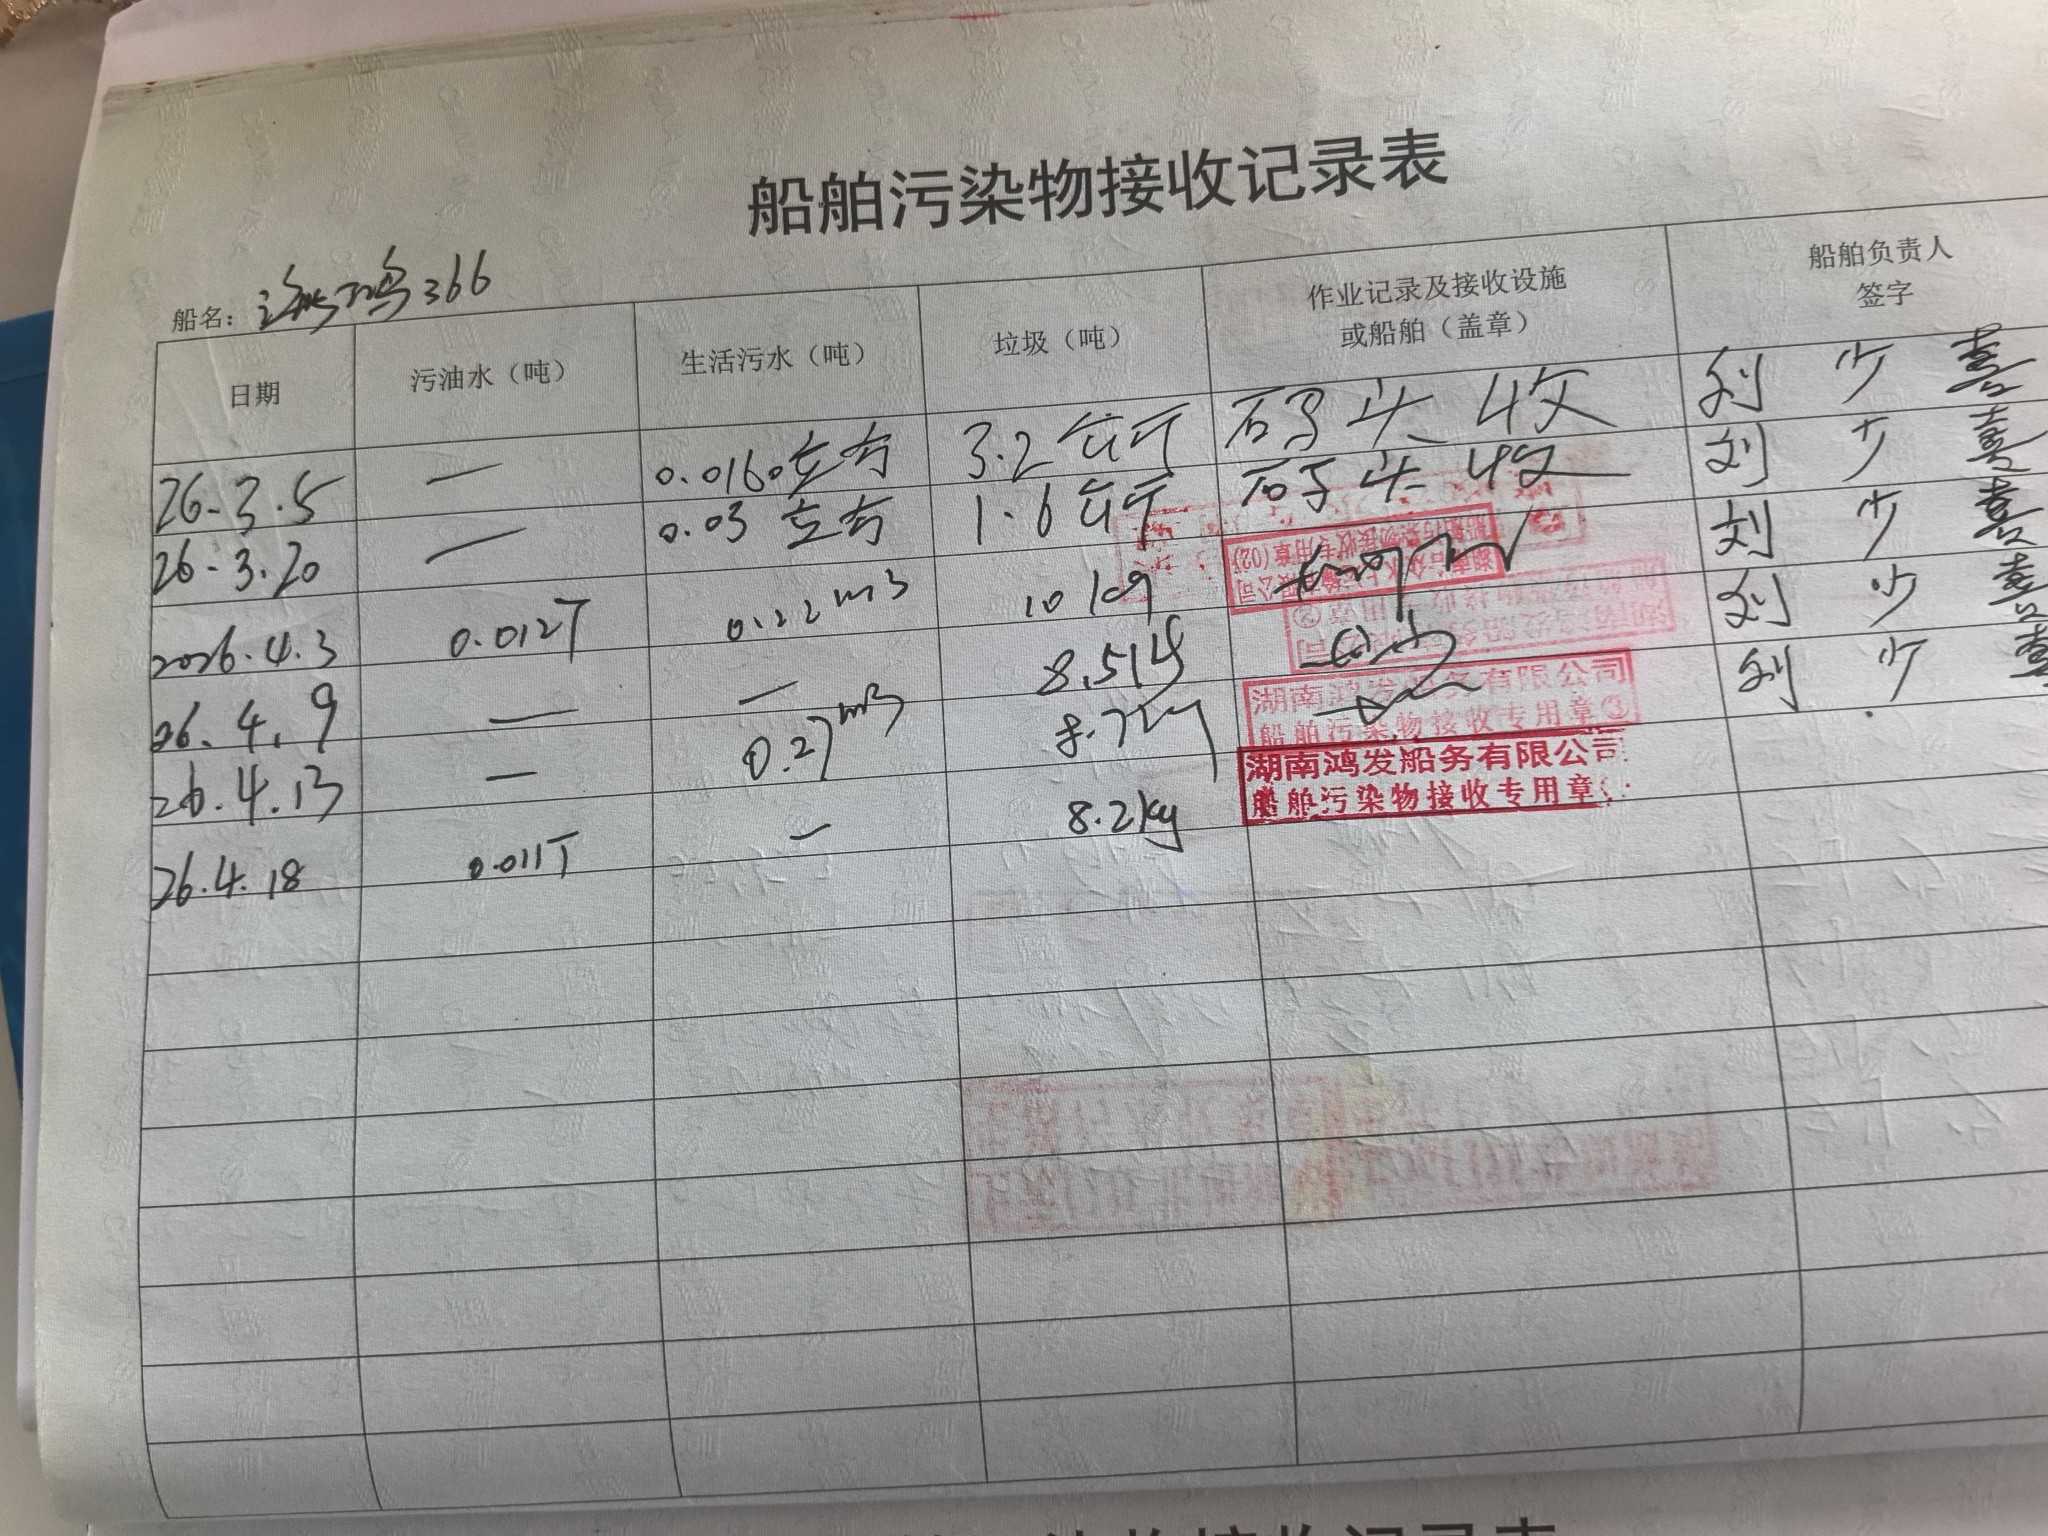 船舶污染物接收记录表
船名： 366
日期 污油水（吨） 生活污水（吨） 垃圾（吨） 作业记录及接收设施或船舶（盖章） 船舶负责人签字
26.3.5 — 0.0160立方 3.2公斤 码头收 刘少喜
26.3.20 — 0.03立方 1.6公斤 码头收 刘少喜
2026.4.3 0.012T 0.22m3 10kg 刘少喜
26.4.9 — — 8.5kg 刘少喜
26.4.13 — 0.27m3 8.7kg 刘少喜
湖南鸿发船务有限公司
船舶污染物接收专用章③
26.4.18 0.011T — 8.2kg
湖南鸿发船务有限公司
船舶污染物接收专用章